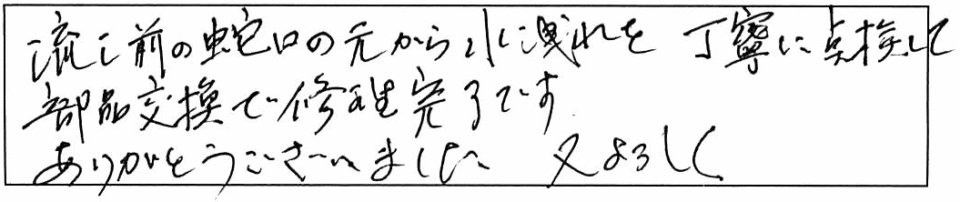 流し前の蛇口の元から水洩れを 丁寧に点検して
部品交換で修理完了です
ありがとうございました 又よろしく